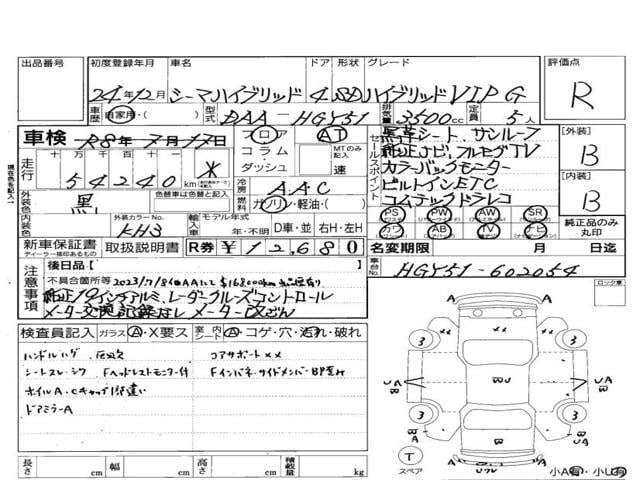 出品番号 初度登録年月 車名 ドア 形状 グレード 評価点
24年12月 シーマハイブリッド 4 SD ハイブリッドVIP G R
車歴 自家用・( ) 型式 DAA - HGY51 排気量 3500cc 定員 5人
車検 R8年7月17日 フロア AT 黒革シート.サンルーフ [外装]
走行 十 万 千 百 十 一 コラム MTのみ記入 セールスポイント 純正ナビ.フルセグTV B
54240km ・ダッシュ 速 カラーバックモニター
冷房 AAC ビルトインETC [内装]
外装色 黒 色替車は色替と記入 燃料 ガソリン・軽油・( ) コムテックドラレコ B
内装色 外装カラーNo. KH3 輸入車 モデル年式 年・不明 D車・並 右H・左H PS PW AW SR カワ AB TV ナビ 純正品のみ丸印
新車保証書 ディーラー捺印あるもの 取扱説明書 R券 ¥12,680 名変期限 月 日迄
注意事項 後日品[ 車台No. HGY51-602054
不具合箇所等 2023/7/8 AAにて ロック車
純正19インチアルミ.レーダークルーズコントロール
メーター交換記録なし メーター改ざん
検査員記入 ガラス A・X要ス 室内シート A・コゲ・穴・汚れ・破れ
ハンドルハゲ. コアサポートXX
シートスレ・シワ Fヘッドレストモニター付 Fインパネ・サイドメンバーBP歪み
ホイルA・Cキャップ1部違い
ドアミラーA
現在色を記入↑
A
3 3
BU
3 3
T
スペア
小A有・小U有
長さ cm 幅 cm 高さ cm 積載量 kg